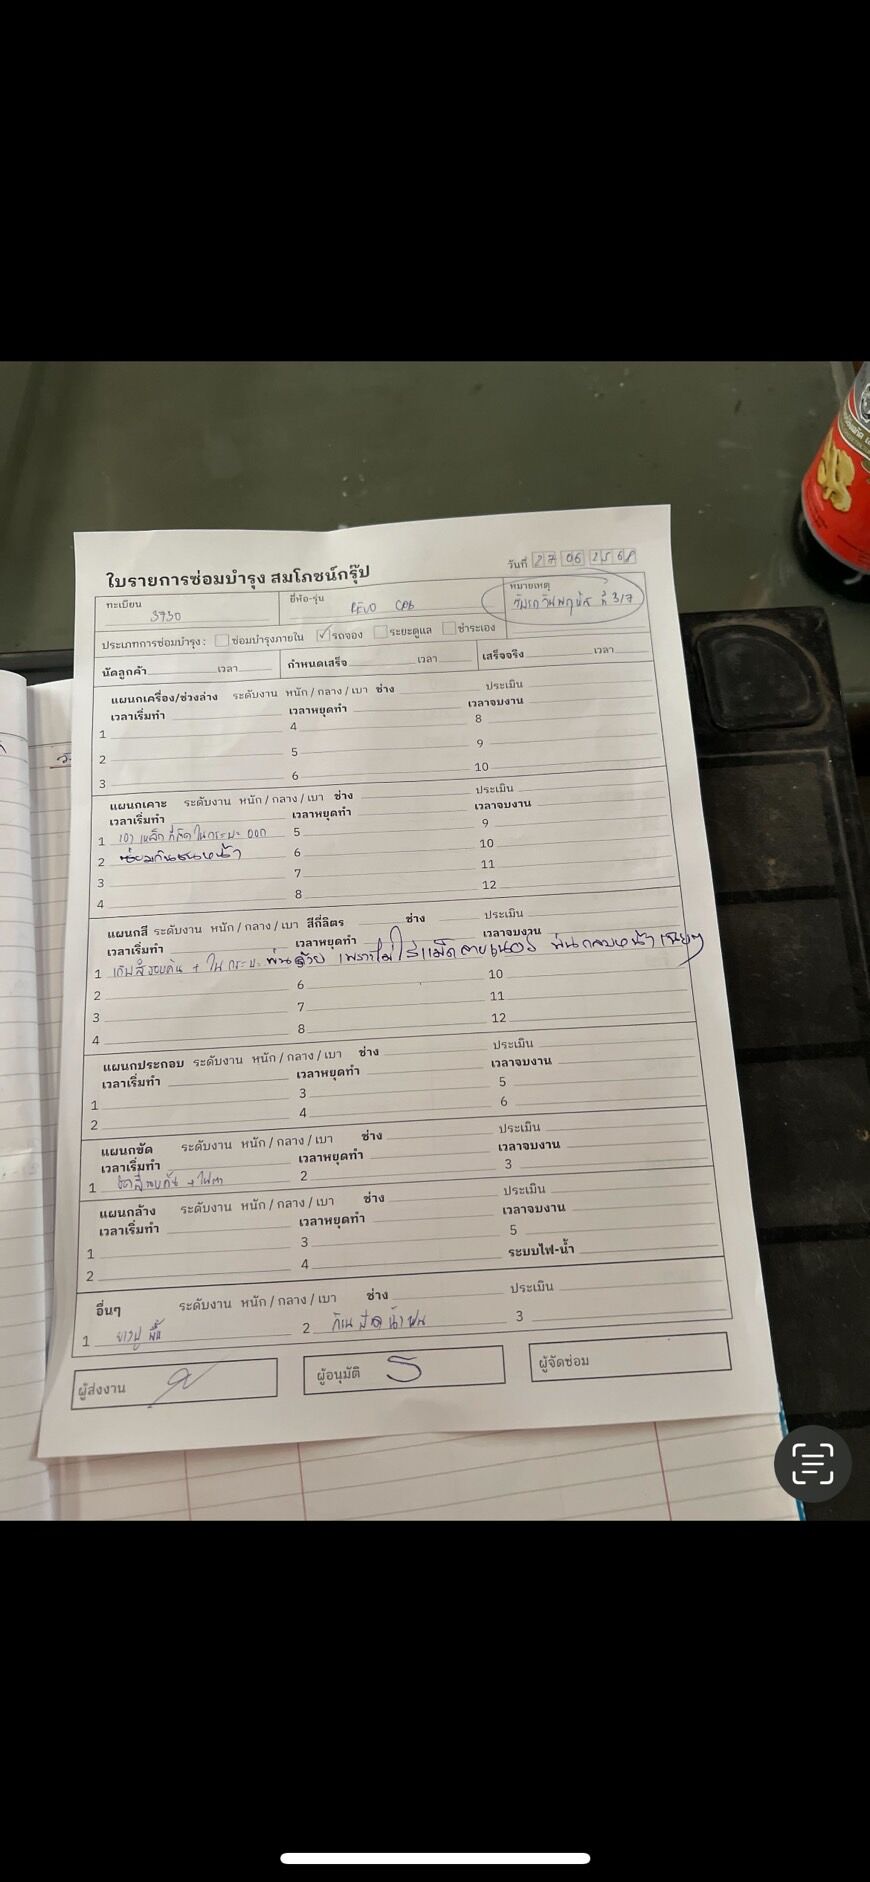 ใบรายการซ่อมบำรุง สมโภชน์กรุ๊ป
วันที่ 27 06 2568
ทะเบียน 3730 ยี่ห้อ-รุ่น REVO หมายเหตุ รับรถวันพฤหัส ที่ 3/7
ประเภทการซ่อมบำรุง : ซ่อมบำรุงภายใน ✓ รถจอง ระยะดูแล ชำระเอง
นัดลูกค้า เวลา กำหนดเสร็จ เวลา เสร็จจริง เวลา
แผนกเครื่อง/ช่วงล่าง ระดับงาน หนัก / กลาง / เบา ช่าง ประเมิน
เวลาเริ่มทำ เวลาหยุดทำ เวลาจบงาน
1 4 8
2 5 9
3 6 10
แผนกเคาะ ระดับงาน หนัก / กลาง / เบา ช่าง ประเมิน
เวลาเริ่มทำ เวลาหยุดทำ เวลาจบงาน
1 เอาเหล็กที่ติดในกระบะออก 5 9
2 ซ่อมกันชนหน้า 6 10
3 7 11
4 8 12
แผนกสี ระดับงาน หนัก / กลาง / เบา สีกี่ลิตร ช่าง ประเมิน
เวลาเริ่มทำ เวลาหยุดทำ เวลาจบงาน
1 เก็บสีรอบคัน + ในกระบะ พ่นด้วย เพราะไม่ใส่แม็คลายเนอร์ พ่นกันชนหน้า
2 6 10
3 7 11
4 8 12
แผนกประกอบ ระดับงาน หนัก / กลาง / เบา ช่าง ประเมิน
เวลาเริ่มทำ เวลาหยุดทำ เวลาจบงาน
1 3 5
2 4 6
แผนกขัด ระดับงาน หนัก / กลาง / เบา ช่าง ประเมิน
เวลาเริ่มทำ เวลาหยุดทำ เวลาจบงาน
1 ขัดสีรอบคัน + ไฟตา 2 3
แผนกล้าง ระดับงาน หนัก / กลาง / เบา ช่าง ประเมิน
เวลาเริ่มทำ เวลาหยุดทำ เวลาจบงาน
1 3 5
2 4 ระบบไฟ-น้ำ
อื่นๆ ระดับงาน หนัก / กลาง / เบา ช่าง ประเมิน
1 ยางปูพื้น 2 ก้านปัดน้ำฝน 3
ผู้ส่งงาน ผู้อนุมัติ ผู้จัดซ่อม